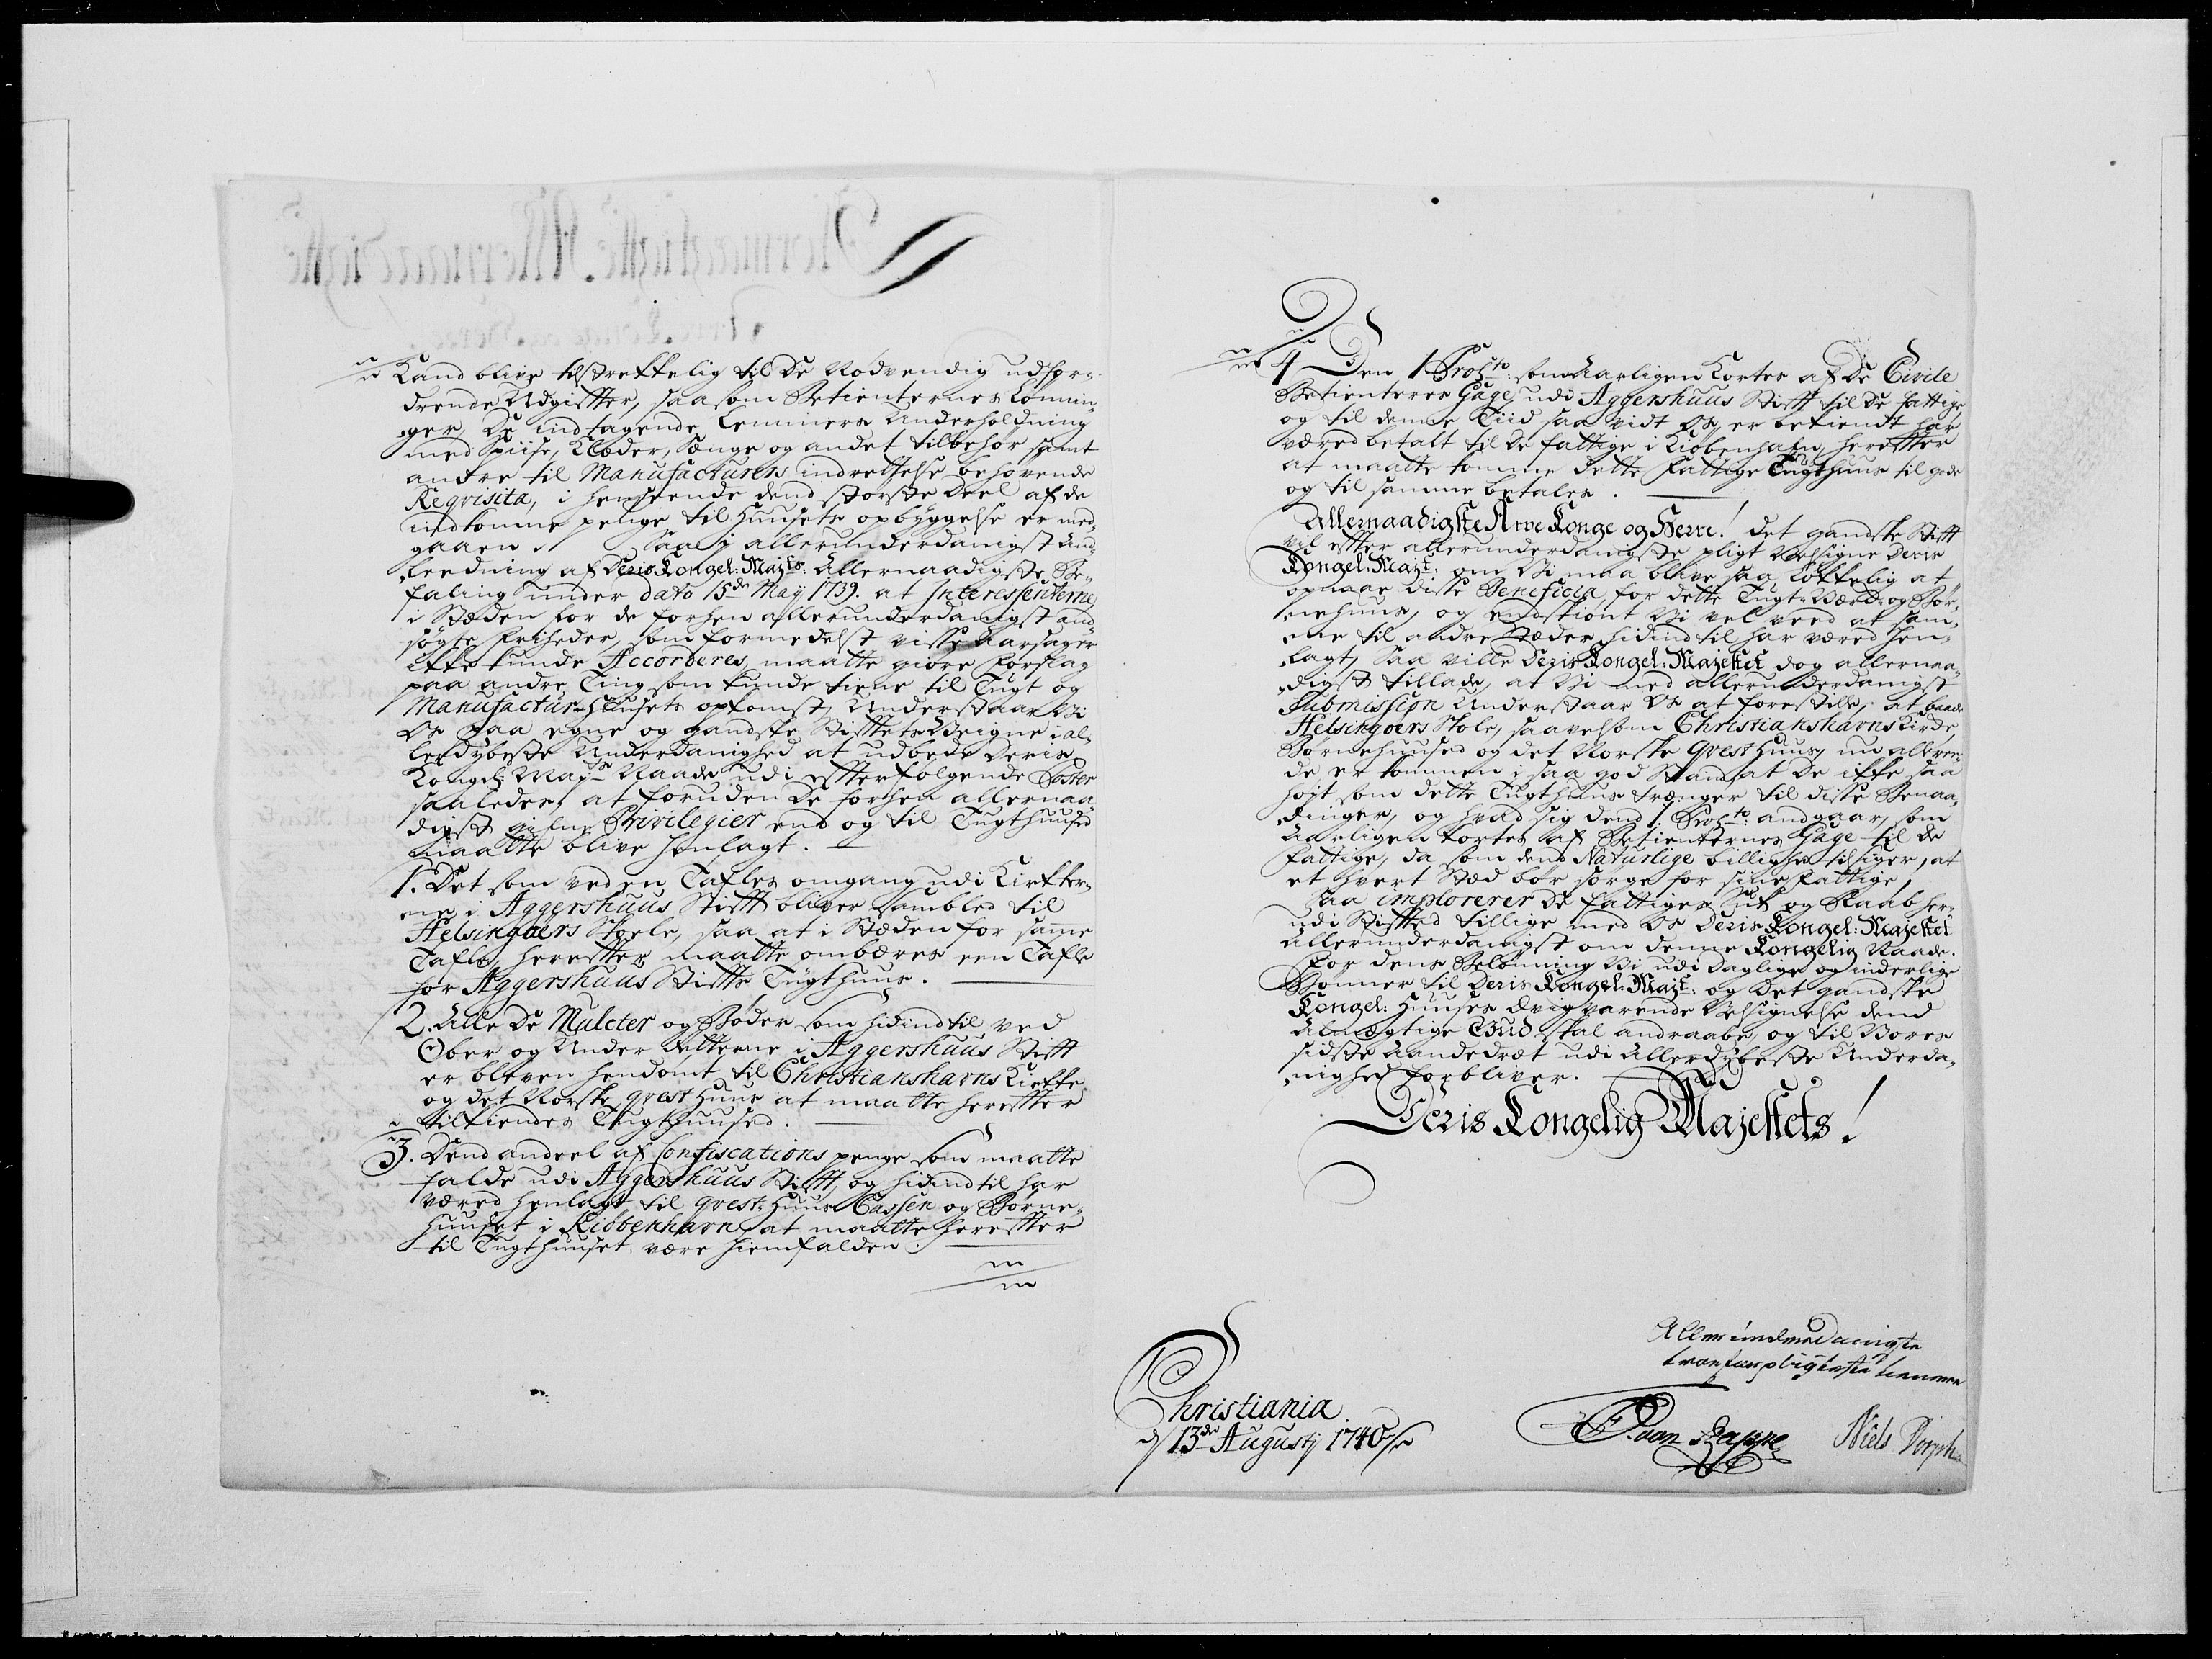 Kand blive tilstrekkelig til De Nødvendig udfor-
drende Udgifter, saasom Betienternes Lønnin-
ger, De indtagende Lemmers Underholdning
med Spiise, Klæder, Senge og andet tilbehør samt
andre til Manufacturens indrettelse behøvende
Reqvisita, i henseende dend største Deel af de
indkomne penge til Huusets opbyggelse er med-
gaaen. Saa i allerunderdanigst And-
leedning af Deris Kongel: Majts: Allernaadigste Be-
faling under dato 15de May 1739. at Interessenterne
i Stæden for de forhen allerunderdanigst and-
søgte friheder, som formedelst visse Aarsager
ikke kunde Accorderes, maatte giøre forslag
paa andre Ting som kunde tiene til Tugt og
Manufactur-Huusets opkomst, Understaar Vi
Os paa egne og gandske Stiftets Veigne i al-
lerdybeste Underdanighed at udbede Deris
Kongel: Mayts Naade udi efterfølgende Poster
saaledes, at foruden De forhen allernaa-
digst givne Privilegier end og til Tugthuused
maatte blive henlagt.
1. Det som ved en Tafles omgang udi Kirker-
ne i Aggershuus Stift bliver sambled til
Helsingøers Skoele, saa at i Stæden for samme
Tafle, herefter maatte ombæres een Tafle
for Aggershuus Stifts Tugthuus.
2. Alle De Mulcter og Bøder som hidindtil ved
Ober og Under Retterne i Aggershuus Stift
er bleven hendømt til Christianshavns Kirke
og det Norske qvest Huus at maatte herefter
tilkiendes Tugthuused.
3. Dend andeel af Confiscations penge som maatte
falde udi Aggershuus Stift, og hidindtil har
væred henlagt til qvest-Huus Cassen og Børne-
Huuset i Kiøbenhavn, at maatte herefter
til Tugthuuset være hiemfalden.
4 Den 1 Proc:to: som Aarligen Kortes af De Civile
Betienteres Gage udi Aggershuus Stift til De fattige,
og til denne Tiid saa vidt Os er bekiendt har
været betalt til De fattige i Kiøbenhafn, herefter
at maatte komme dette fattige Tugthuus til gode
og til samme betales.
Allernaadigste Arve Konge og Herre! Det gandske Stift
vil efter allerunderdanigste pligt Velsigne Deris
Kongel: Majt: om Vi maa blive saa lökkelig at
opnaae disse Beneficia for dette Tugt-Værk- og Bør-
nehuus, og endskiønt Vi vel veed at sam-
me til andre Stæder hidindtil har været hen-
lagt, Saa ville Deris Kongel: Majestet dog allernaa-
digst tillade, at Vi med allerunderdanigst
Submission Understaar Os at forestille, at baade
Helsingøers Skole, saavelsom Christianshavns Kirke,
Børnehuused og det Norske qvest Huus nu alleree-
de er kommen i saa god Stand at De ikke saa
højt som dette Tugthuus trænger til disse Benaa-
dinger, og hvad sig dend 1. Proc:to: andgaar, som
Aarligen kortes af Betienternes Gage til de
fattige, da som dend Naturlige billighed tilsiger, at
et hvert Stæd bør sørge for sine fattige,
Saa implorerer De fattiges Suk og Raab her-
udi Stifted tillige med Os Deris Kongel: Majestet
Allerunderdanigst om denne Kongelig Naade.
For dens Belønning Vi udi daglige og inderlige
Bønner til Deris Kongel: Majt: og det gandske
Kongel: Huuses Ævigvarende Velsignelse dend
Almægtige Gud skal andraabe, og til Vores
sidste Aandedræt udi Allerdybeste Underda-
nighed forbliver.
Deris Kongelig Majestets!
Allerunderdanigste
troepligtigste tiennere
Christiania
d 13de Augustj 1740
von Rappe Niels Dorph